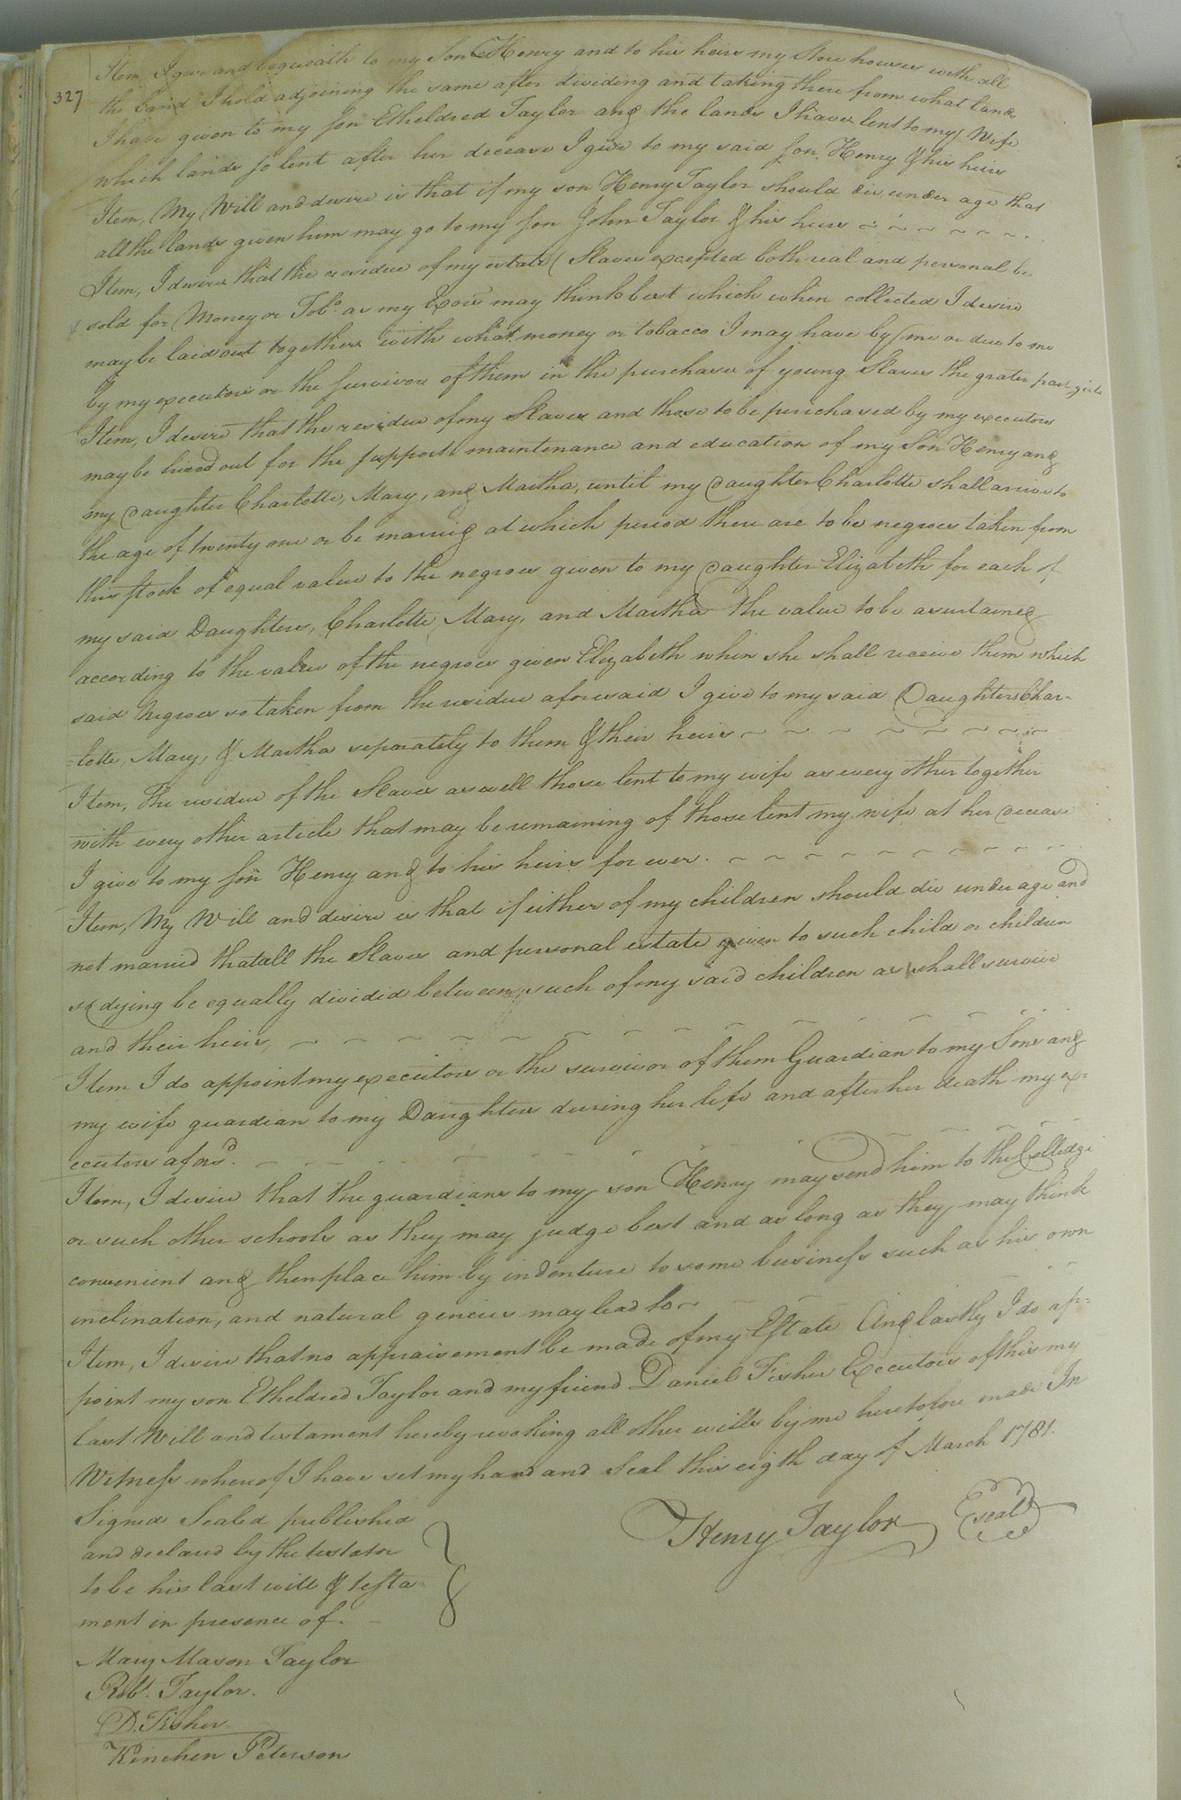 327
Item, I give and bequeath to my Son Henry and to his heirs my Store houses with all
the Land I hold adjoining the same after dividing and taking there from what lands
I have given to my son Etheldred Taylor and the lands I have lent to my Wife
which lands so lent after her decease I give to my said son Henry & his heirs
Item, My Will and desire is that if my son Henry Taylor should die under age that
all the lands given him may go to my son John Taylor & his heirs
Item, I desire that the residue of my estate (Slaves excepted both real and personal be
sold for Money or Tobo. as my Exors may think best which when collected I desire
may be laid out together with what money or tobacco I may have by me or due to me
by my executors or the survivors of them in the purchase of young Slaves the grater part girls
Item, I desire that the residue of my Slaves and those to be purchased by my executors
may be hired out for the support maintenance and education of my Son Henry and
my Daughter Charlotte, Mary, and Martha, until my Daughter Charlotte shall arrive to
the age of twenty one or be married at which period there are to be negroes taken from
this stock of equal value to the negroes given to my Daughter Elizabeth for each of
my said Daughters, Charlotte, Mary, and Martha the value to be ascertained
according to the value of the negroes given Elizabeth when she shall receive them which
said Negroes so taken from the residue aforesaid I give to my said Daughters Char-
=lotte, Mary, & Martha separately to them & their heirs
Item, The residue of the Slaves as well those lent to my wife as every other together
with every other article that may be remaining of those lent my wife at her Decease
I give to my son Henry and to his heirs for ever.
Item, My Will and desire is that if either of my children should die under age and
not married that all the Slaves and personal estate given to such child or children
so dying be equally divided between such of my said children as shall survive
and their heirs
Item I do appoint my executors or the survivor of them Guardian to my Sons and
my wife guardian to my Daughters during her life and after her death my ex-
ecutors afors'd.
Item, I desire that the guardians to my son Henry may send him to the Colledge
or such other schools as they may judge best and as long as they may think
convenient and then place him by indenture to some business such as his own
inclination, and natural genius may lead to
Item, I desire that no appraisement be made of my Estate And lastly I do ap-
point my son Etheldred Taylor and my friend Daniel Fisher Executors of this my
last Will and testament hereby revoking all other wills by me heretofore made In
Witness whereof I have set my hand and Seal this eigth day of March 1781.
Henry Taylor Seal
Signed Sealed published
and declared by the testator
to be his last will & testa-
ment in presence of.
Mary Mason Taylor
Robt. Taylor.
D. Fisher
Kinchen Peterson